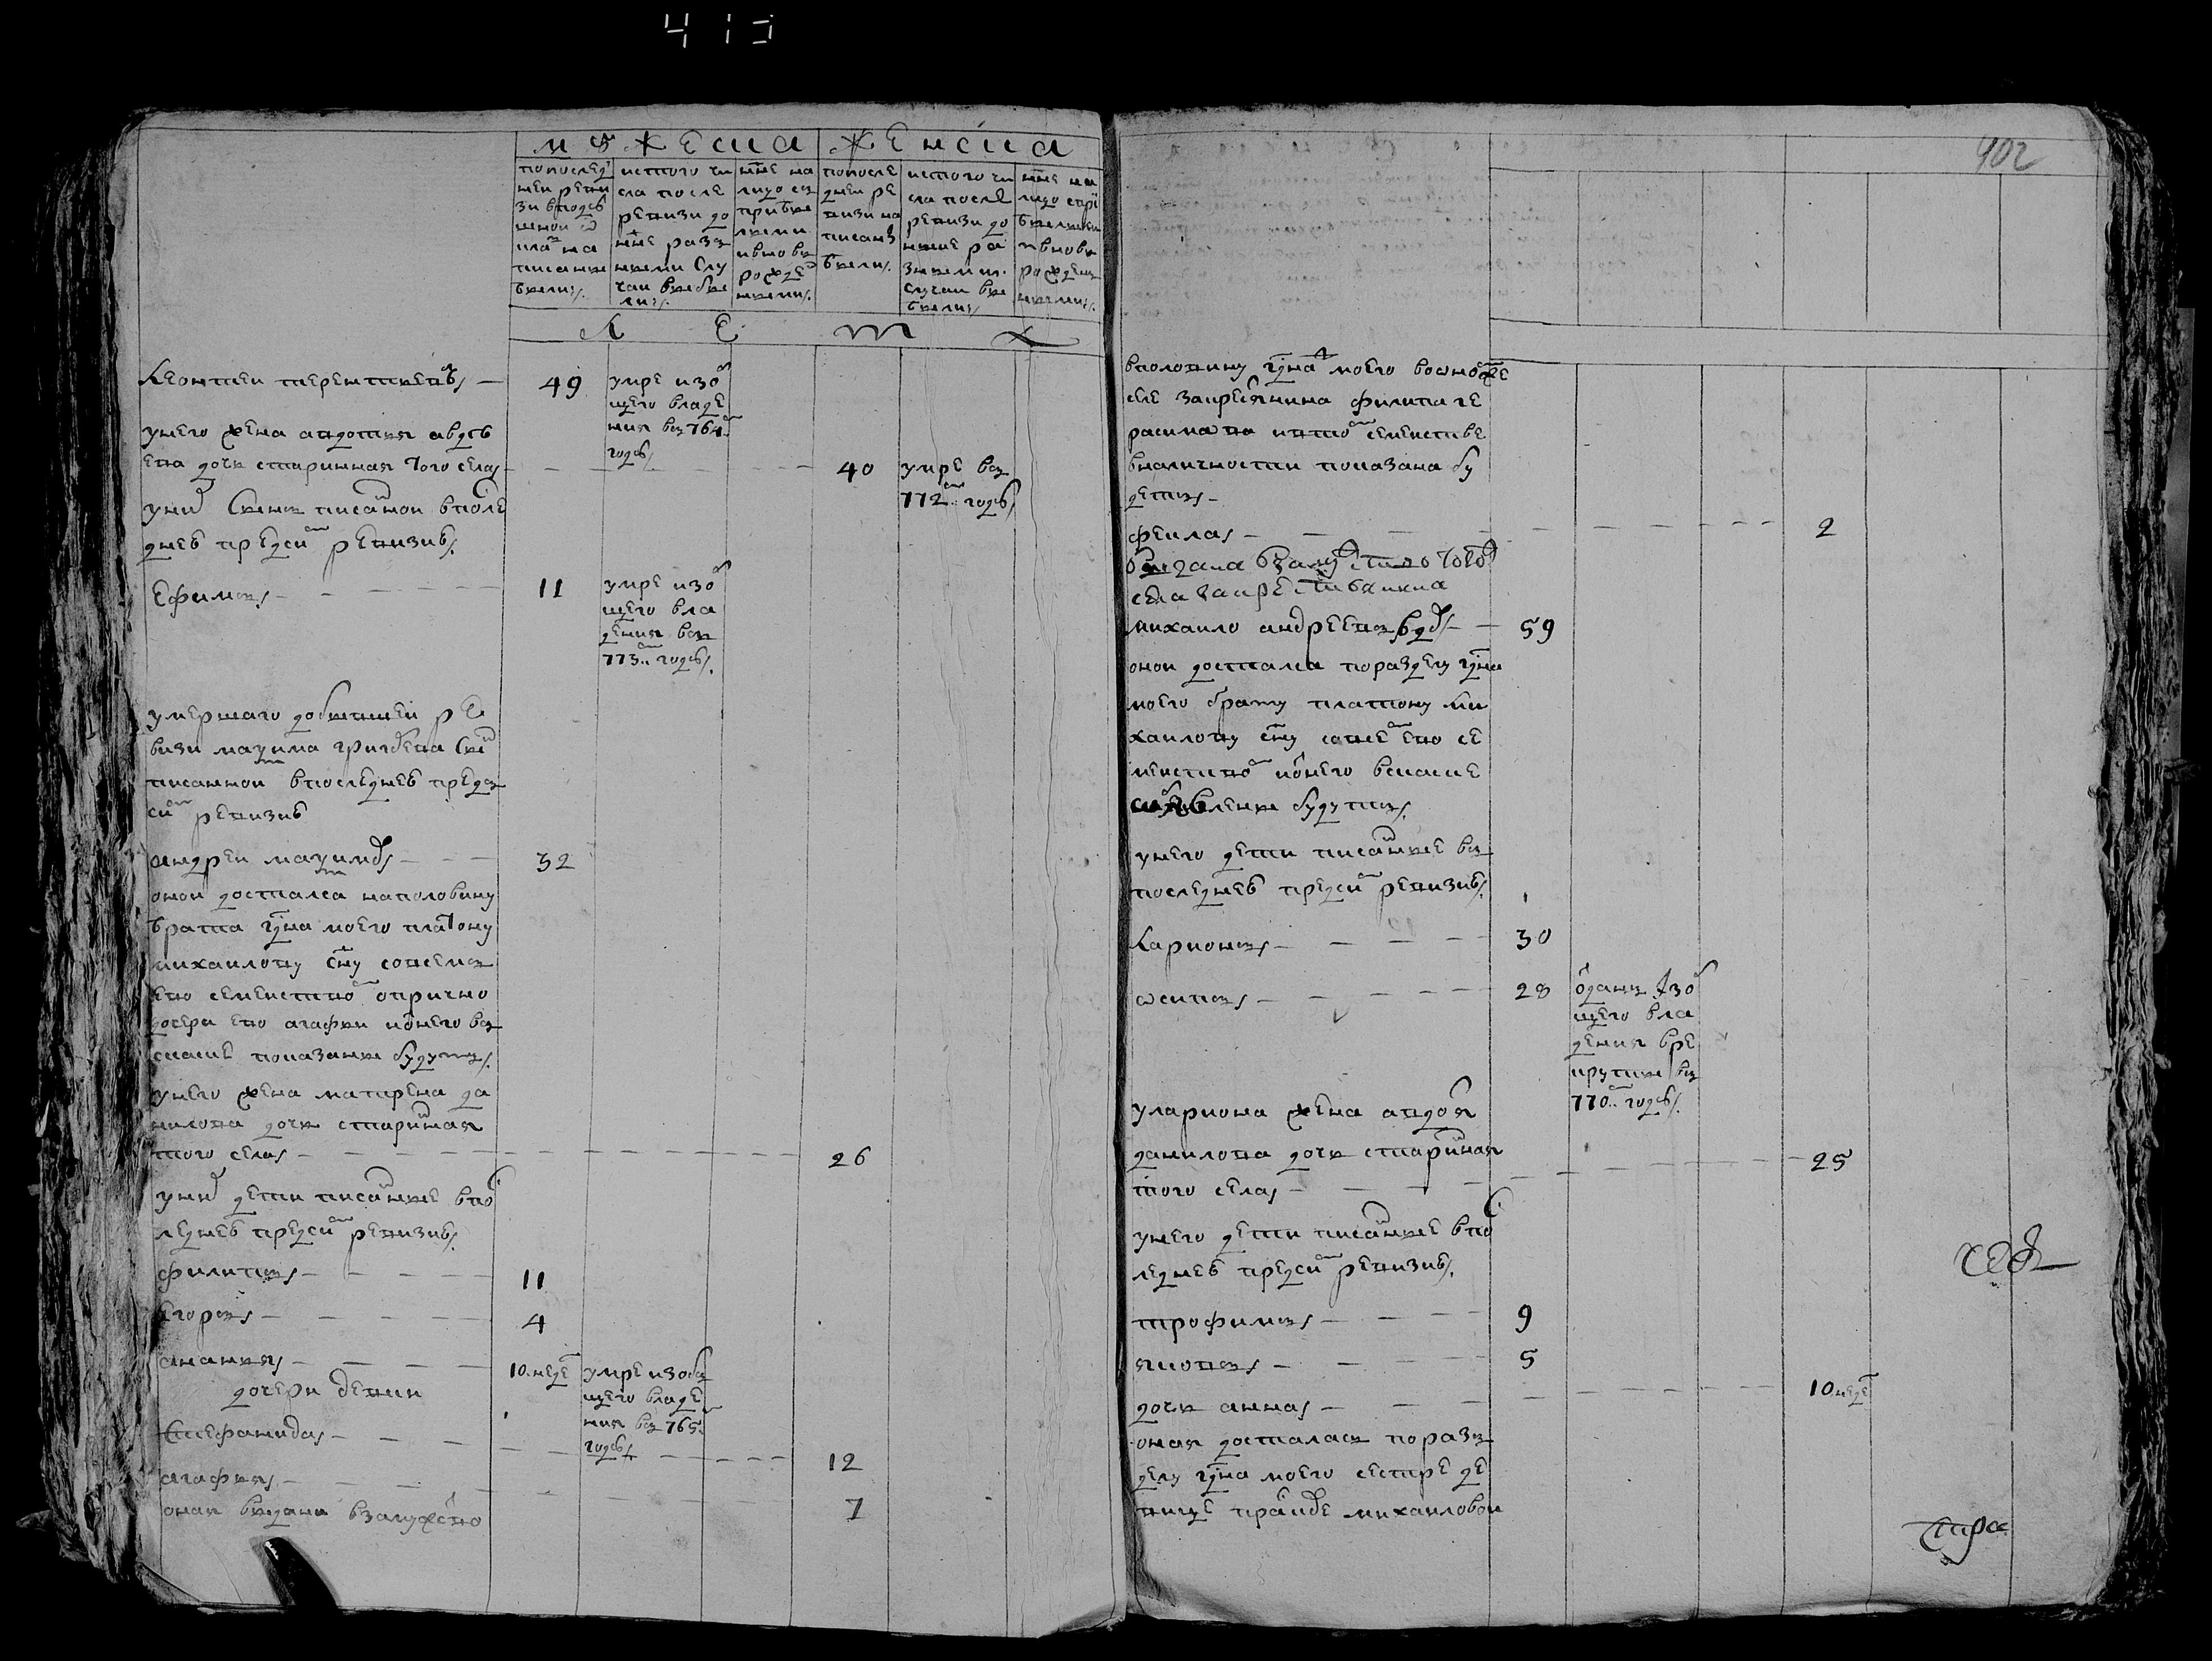 413
402
мужеска женска
попослед
ней реви
зи вподу
шной ѡ
кладъ на
писаны
были
ис того чи
сла после
ревизи до
ныне раз
ными слу
чаи выбы
ли
ныне на
лицо съ
прибы
лыми
и вновь
рожде
ными
попосле
дней ре
визи на
писаны
были
ис того чи
сла после
ревизи до
ныне ра
зными
случаи вы
были
ныне на
лицо спри
былыми
и вновь
рожден
ными
лета
Леонтеи терентьевъ 49
умре изоб
щего владе
ния въ 764
году
унего жена авдотья авде
ева дочь старинная того села 40
умре въ
772м году
уних сынъ писаной впосле
дней пред сим ревизиі
Ефимъ 11
умре изоб
щего вла
дения въ
773м году
умершаго до бывшеи ре
визи максима григорева сын
писанной впоследней пред
сим ревизиі
андреи максимовъ 32
оной достался на половину
брата гдна моего платону
михайлову сну со всемъ
ево семействомъ опричь
дочери ево агафьи и у него въ
скаске показаны будутъ
унего жена матрена да
нилова дочь старинная
того села 26
уних дети писанные впос
ледней пред сим ревизиі
филипъ 11
егоръ 4
ананья 10 неде
умре изобъ
щего владе
ния въ 765м
году
дочери девки
Стефанида 12
агафья 7
оная выдана взамужство
вполовину гдна моего во оное
же за крестянина филипа ге
расимова и втом семействе
вналичности показана бу
детъ
фекла 2
выдана взамужство того
села за крестьянина
михайло андреевъ вд 59
оной достался по разделу гдна
моего брату платону ми
хайлову сну со всем ево се
мейством и у него вскаске
обьявлены будутъ
унего дети писанные въ
последней пред сим ревизиі
Ларионъ 30
ѡсипъ 28
отданъ изоб
щего вла
дения вре
круты въ
770м году
улариона жена авдотья
данилова дочь старинная
того села 25
унего дети писанные впос
ледней пред сим ревизиі
трофимъ 9
яковъ 5
дочь анна 10 неде
оная досталась по раз
делу гдна моего сестре де
вице праскове михайловой